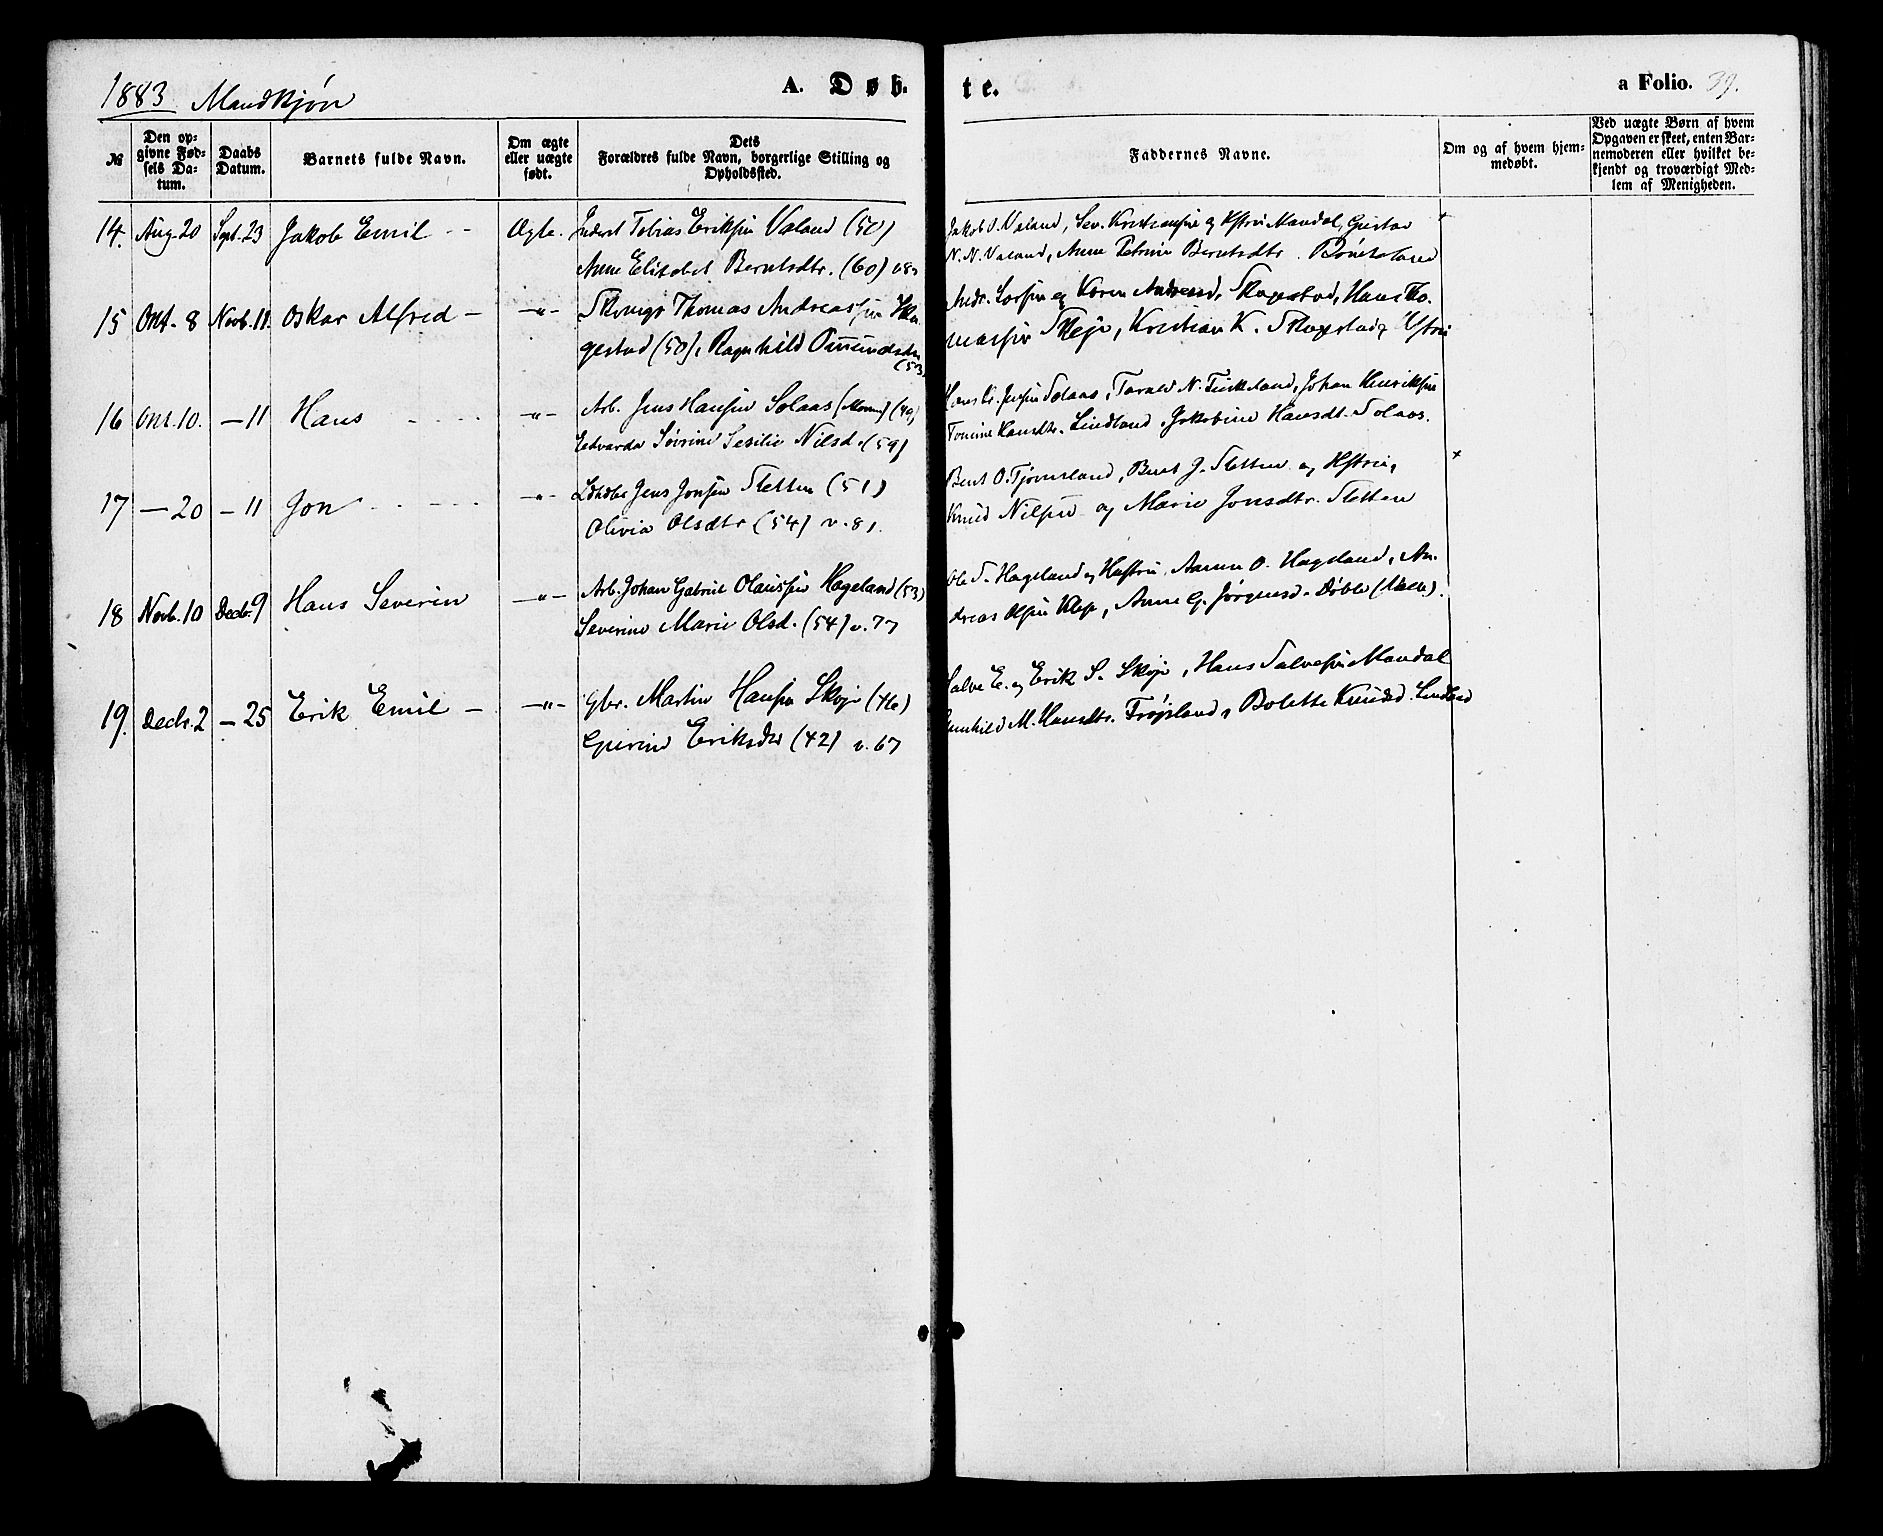 1883 Mandkjøn
A. Døb-
te.
a Folio. 39.
№
Den op-
givne Fød-
sels Da-
tum.
Daabs
Datum.
Barnets fulde Navn.
Om ægte
eller uægte
født.
Dets
Forældres fulde Navn, borgerlige Stilling og
Opholdssted.
Faddernes Navne.
Om og af hvem hjem-
medøbt.
Ved uægte Børn af hvem
Opgaven er skeet, enten Bar-
nemoderen eller hvilket be-
kjendt og troværdigt Med-
lem af Menigheden.
14. Aug. 20 Sept. 23 Jakob Emil - - Ægte. Inderst Tobias Eriksen Valand (50)
Anne Elisabet Berntsdtr. (60)
Jakob O. Valand, Sev. Kristiansen og Hstru Mandal, Gustav
N. N. Valand, Anne Petrine Berntsdtr.
15 Okt. 8 Novb. 11. Oskar Alfred - -"- Thomas Andreassen Ska-
gestad (50), Ragnhild Omundsdtr
(53)
Andr. Larsen og Karen Andersd. Skagestad, Hans To-
massen Skeje, Kristian K. Skagestad og Hstru
16 Okt. 10. - 11 Hans - - - - -"- Arb. Jens Hansen Solaas (49)
Edvarda Sørine Sesilie Nilsd. (59)
Jensen Solaas, Tarald N. Johan Henriksen
Tomine Hansdtr. Lindland, Jakobine Hansdt. Solaas.
17 - 20 - 11 Jon - - - - -"- Jens Jonsen Sletten (51)
Olivia Olsdtr (54) v. 81.
Bent O. Tjomsland, Bent J. Sletten og Hstru,
Knud Nilsen og Marie Jonsdtr. Sletten
18 Novb. 10 Decbr. 9 Hans Severin -"- Arb. Johan Gabriel Olaussen Hageland (53)
Severine Marie Olsd. (54) v. 77
Ole T. Hageland og Hustru, Aanen O. Hageland, An-
dreas Olsen Klep, Anne G. Jørgensd. Døble (Halse).
19. Decbr. 2 - 25 Erik Emil - -"- Gbr. Martin Hansen Skøje (46)
Gurine Eriksdtr (42) v. 67
Salve E. og Erik S. Skøje, Hans Salvesen Mandal
Gunhild M. Hansdtr. Frøjsland, Bolette Knudsd. Lindland